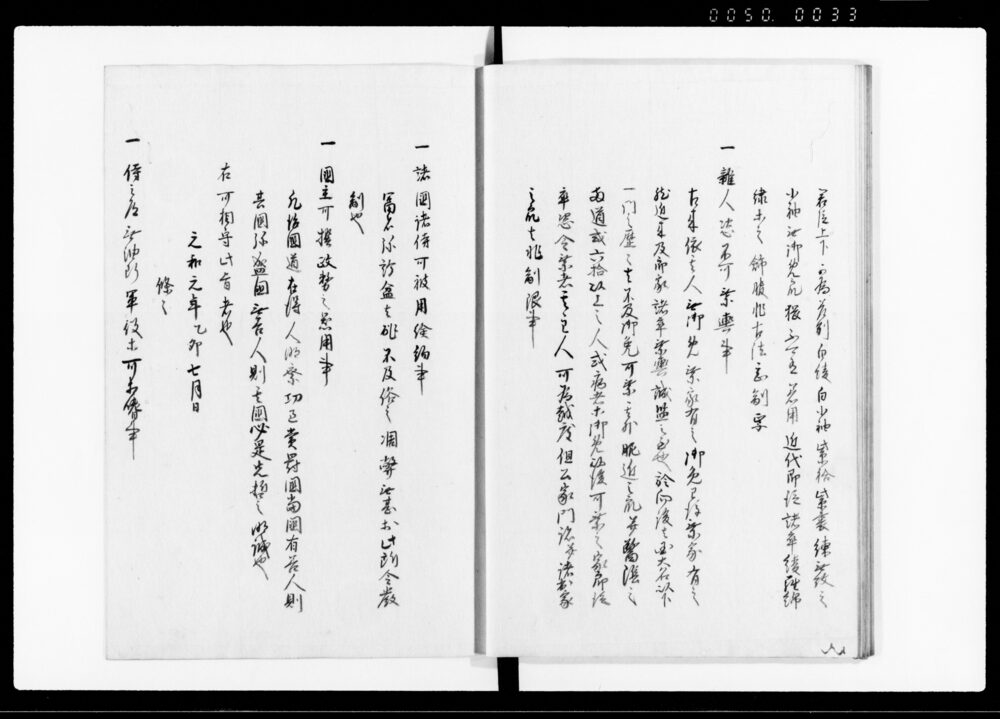 0050. 0033
君臣上下可為各別白綾白小袖紫袷紫裏練無紋之
小袖無御免 猥不可有着用近代郎従諸卒綾羅錦
繍等之飾服非古法甚制焉
一 雑人恣不可乗輿事
古来依其人無御免乗家有之御免已後乗家有之
然近来及家郎諸卒乗輿誠濫之至也於向後者国大名以下
一門之歴々者不及御免可乗其外昵近之 并醫陰之
両道或六拾以上之人或病者等御免以後可乗之家郎従
卒恣令乗者其主人可為越度但公家門跡并諸出家
之 者非制限事
一 諸國諸侍可被用倹約事
富者弥誇 貧者恥不及俗之凋弊無甚於此所令厳
制也
一 國主可撰政務之器用事
凡治國道在得人明察功過賞罰 當國有善人則
其國弥 國無善人則其國必 是先哲之明誡也
右可相守此旨者也
元和元年乙卯七月日
條々
一 侍之 無油断軍役等可 事